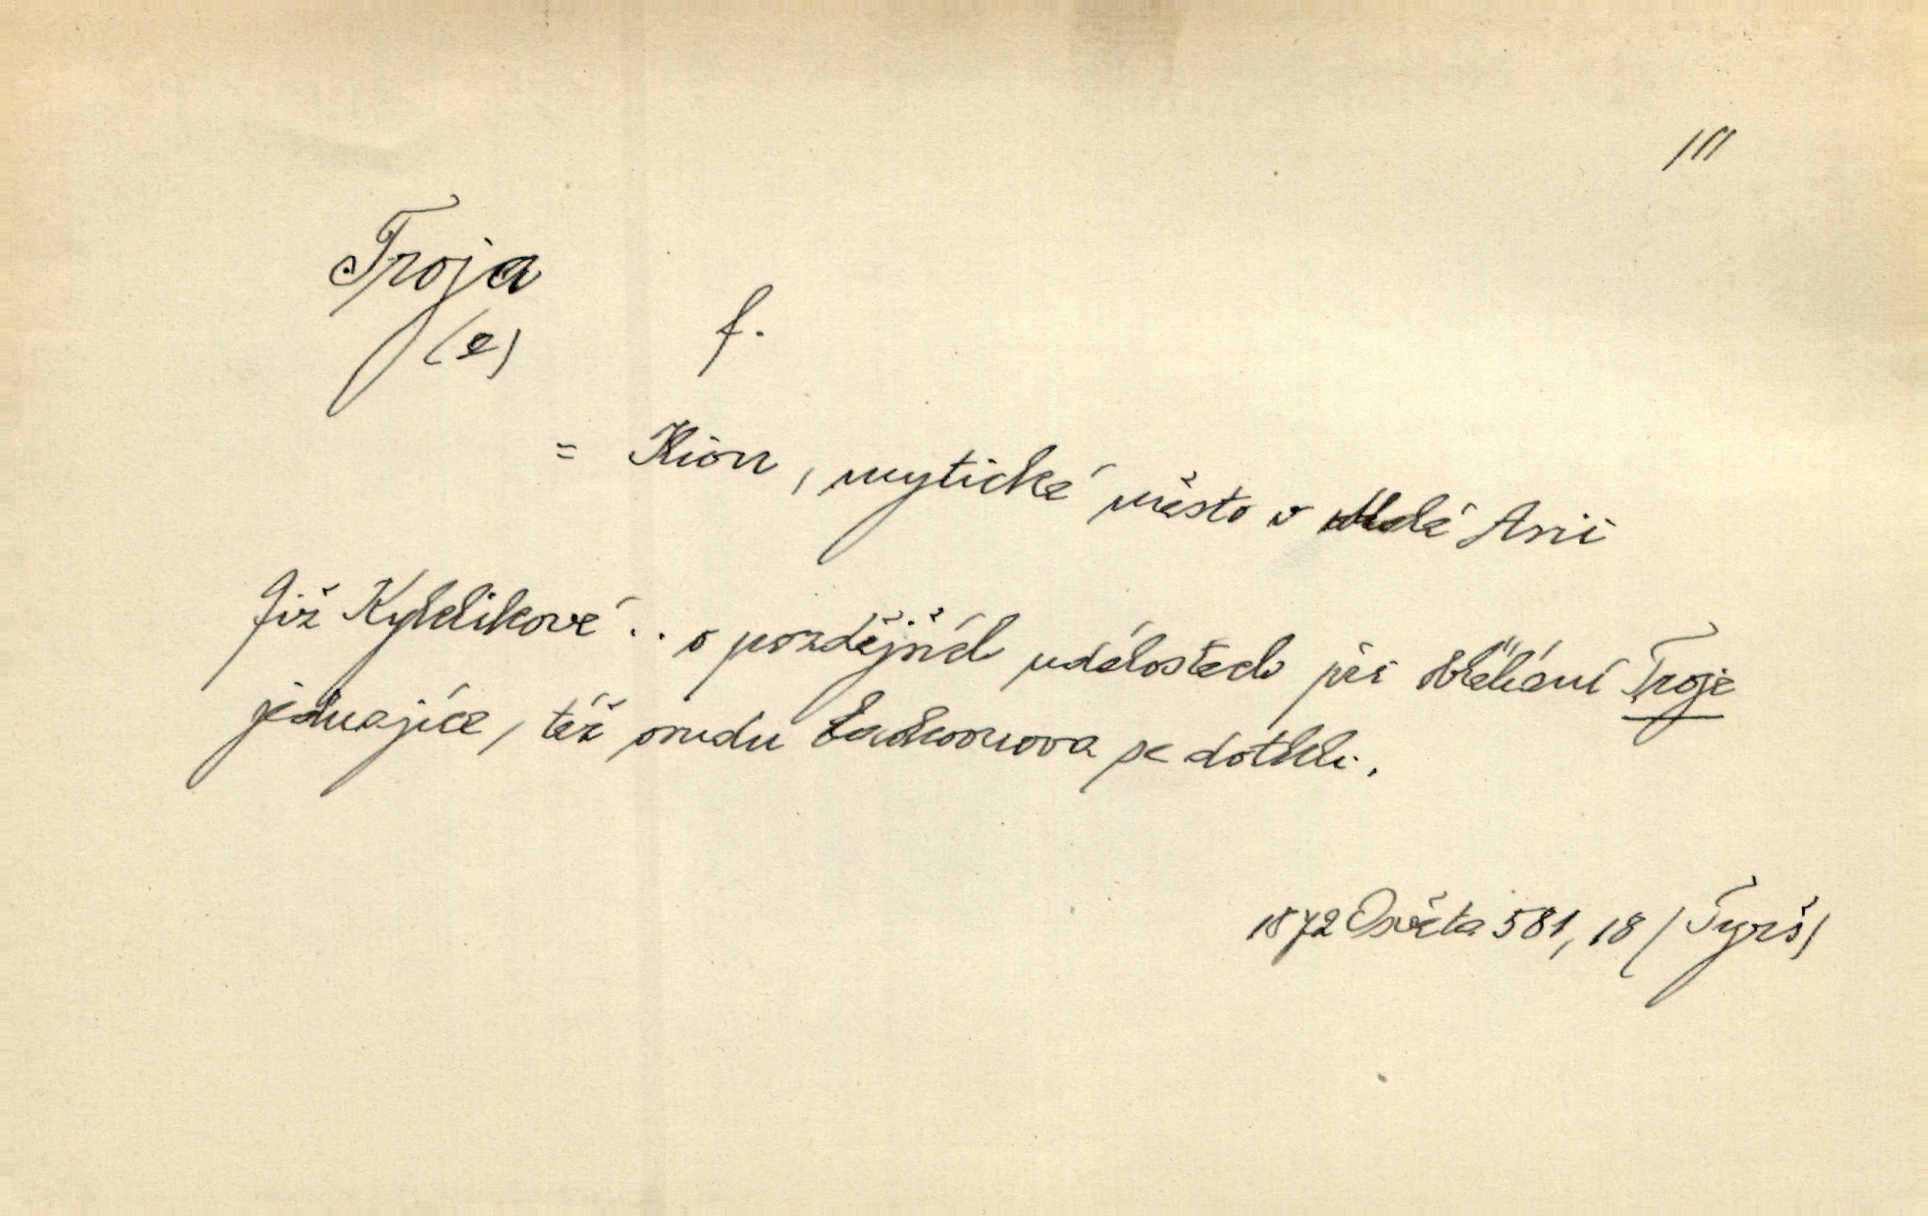 111
Troja
(e) f.
= Ilion, mytické město v Malé Asii
Již Kyklikové .. o pozdějších událostech při obléhání Troje
jednajíce, též osudu Laokoonova se dotkli.
1872 Osvěta 581, 18 (Tyrš)